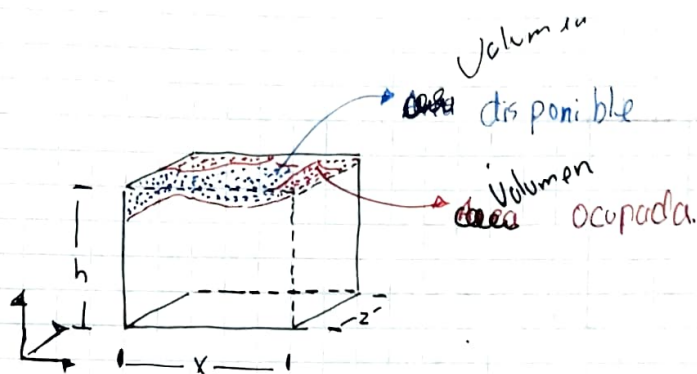 Volumen
disponible
Volumen
ocupada.
h
x
z